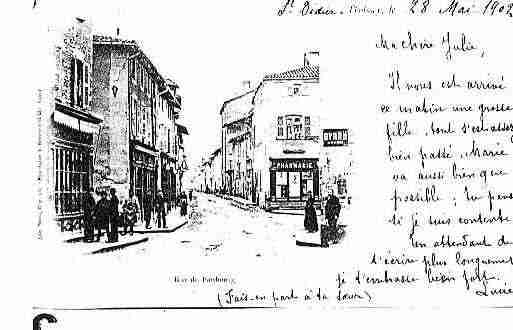 St Didier, Fbourg, le 28 Mai 1902
Ma chère Julie,
Il nous est arrivé
ce matin une grosse
fille. tout s'est assez
bien passé. Marie
va aussi bien que
possible ; tu pens
si je suis contente
En attendant de
t'écrire plus longuement
je t'embrasse bien fort.
Lucie
(Fais-en part à ta sœur)
PHARMACIE
Rue de